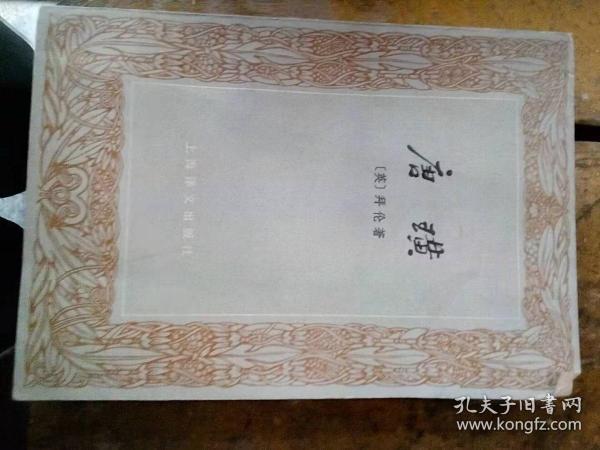 唐璜
〔英〕拜伦著
上海译文出版社
孔夫子旧书网
www.kongfz.com